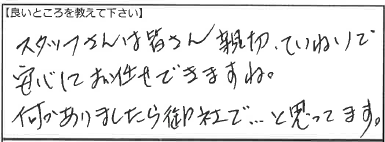 【良いところを教えて下さい】
スタッフさんは皆さん親切、ていねいで
安心してお任せできますね。
何かありましたら御社で…と思ってます。